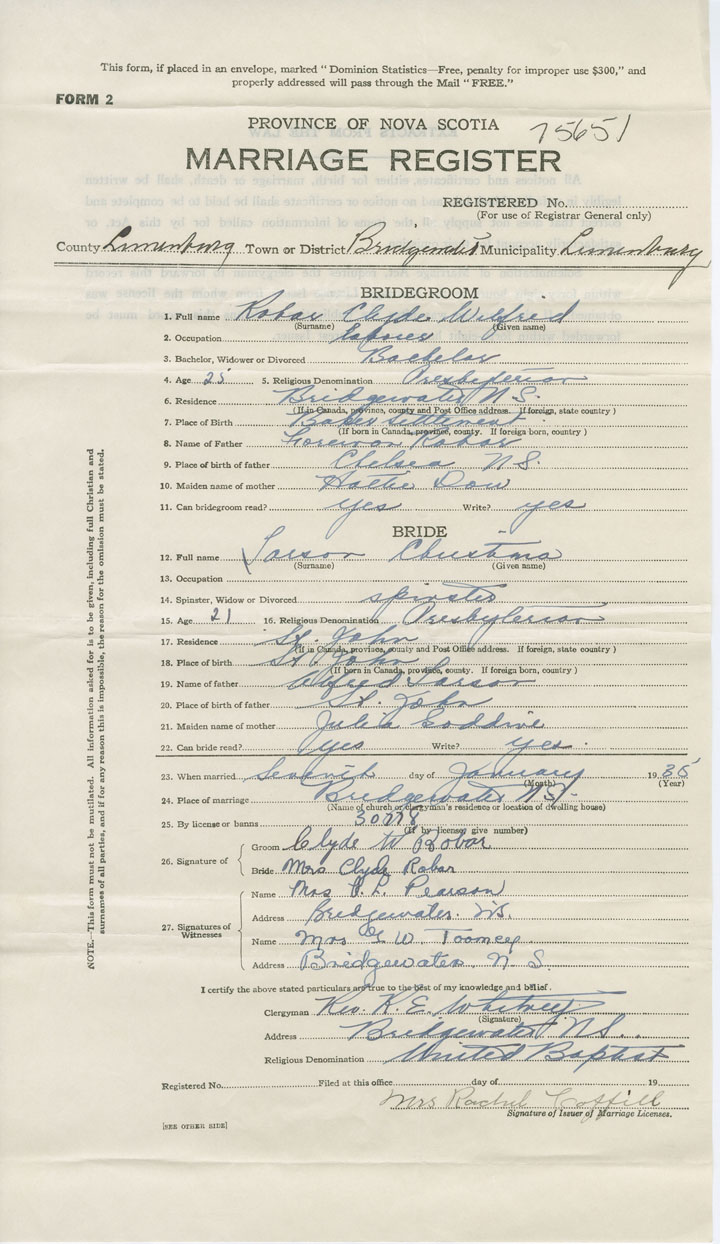 This form, if placed in an envelope, marked "Dominion Statistics—Free, penalty for improper use $300," and
properly addressed will pass through the Mail "FREE."
FORM 2
PROVINCE OF NOVA SCOTIA 75651
MARRIAGE REGISTER
REGISTERED No.
(For use of Registrar General only)
County Lunenburg Town or District Bridgewater Municipality Lunenburg
BRIDEGROOM
1. Full name Robar Clyde Wilfred
(Surname) (Given name)
2. Occupation laborer
3. Bachelor, Widower or Divorced Bachelor
4. Age 25 5. Religious Denomination Presbyterian
6. Residence Bridgewater N.S.
(If in Canada, province, county and Post Office address. If foreign, state country)
7. Place of Birth Baker Settlement
(If born in Canada, province, county. If foreign born, country)
8. Name of Father Robar
9. Place of birth of father Chelsea N.S.
10. Maiden name of mother Hattie
11. Can bridegroom read? yes Write? yes
BRIDE
12. Full name Larson Christina
(Surname) (Given name)
13. Occupation
14. Spinster, Widow or Divorced spinster
15. Age 21 16. Religious Denomination Presbyterian
17. Residence St. John
(If in Canada, province, county and Post Office address. If foreign, state country)
18. Place of birth St. John
(If born in Canada, province, county. If foreign born, country)
19. Name of father Alfred Larson
20. Place of birth of father St. John
21. Maiden name of mother Julia
22. Can bride read? yes Write? yes.
23. When married Seventh day of January 1935
(Month) (Year)
24. Place of marriage Bridgewater N.S.
(Name of church or clergyman's residence or location of dwelling house)
25. By license or banns 30778
(If by license, give number)
26. Signature of
Groom Clyde W Robar
Bride Mrs Clyde Robar
27. Signatures of Witnesses
Name Mrs R. L. Pearson
Address Bridgewater. N.S.
Name Mrs G. W. Toomey
Address Bridgewater, N.S.
I certify the above stated particulars are true to the best of my knowledge and belief.
Clergyman Rev. K. E. Whitney
(Signature)
Address Bridgewater N.S.
Religious Denomination United Baptist
Registered No. Filed at this office day of 19
Mrs Rachel Coffill
Signature of Issuer of Marriage Licenses.
[SEE OTHER SIDE]
NOTE.—This form must not be mutilated. All information asked for is to be given, including full Christian and
surnames of all parties, and if for any reason this is impossible, the reason for the omission must be stated.